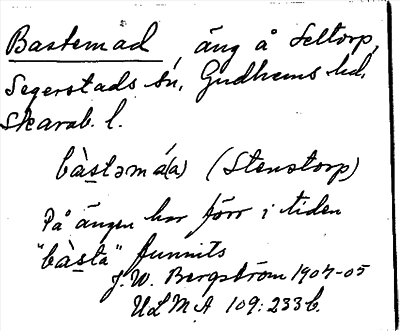 Bastemad äng å Seltorp,
Segerstads sn, Gudhems hd,
Skarab. l.
bàstəmá(a) (Stenstorp)
På ängen har förr i tiden
"bàsta" funnits
J. W. Bergström 1904-05
ULMA 109:233b.